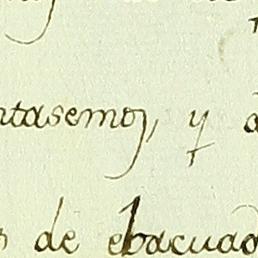 ntasemos, y a
s de ebacuad